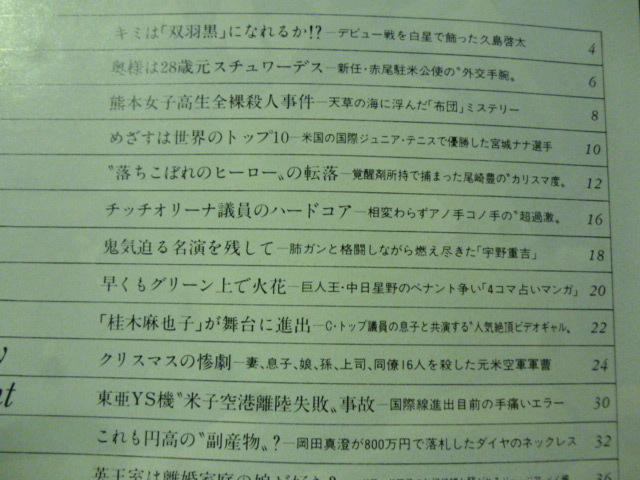 キミは「双羽黒」になれるか!?—デビュー戦を白星で飾った久島啓太 4
奥様は28歳元スチュワーデス—新任・赤尾駐米公使の〝外交手腕〟 6
熊本女子高生全裸殺人事件—天草の海に浮んだ「布団」ミステリー 8
めざすは世界のトップ10—米国の国際ジュニア・テニスで優勝した宮城ナナ選手 10
〝落ちこぼれのヒーロー〟の転落—覚醒剤所持で捕まった尾崎豊の〝カリスマ度〟 12
チッチオリーナ議員のハードコア—相変わらずアノ手コノ手の〝超過激〟 16
鬼気迫る名演を残して—肺ガンと格闘しながら燃え尽きた「宇野重吉」 18
早くもグリーン上で火花—巨人王・中日星野のペナント争い「4コマ占いマンガ」 20
「桂木麻也子」が舞台に進出—C・トップ議員の息子と共演する〝人気絶頂ビデオギャル〟 22
クリスマスの惨劇—妻、息子、娘、孫、上司、同僚16人を殺した元米空軍軍曹 24
東亜YS機〝米子空港離陸失敗〟事故—国際線進出目前の手痛いエラー 30
これも円高の〝副産物〟?—岡田真澄が800万円で落札したダイヤのネックレス 32
英王室は離婚家庭の娘が好き? 36